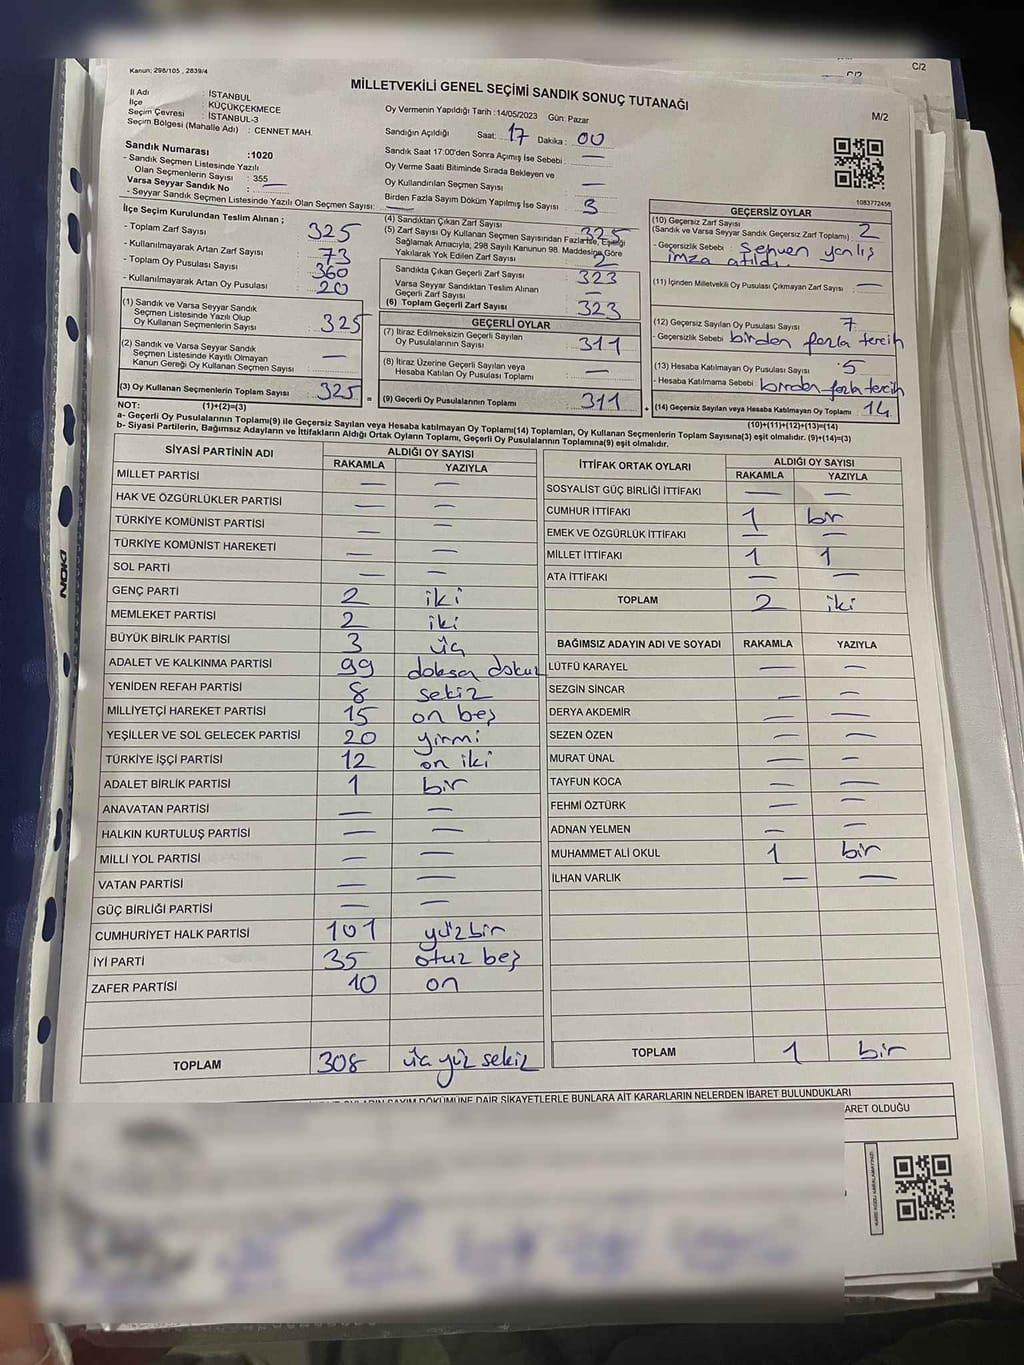 Kanun; 298/105 , 2839/4
C/2
MİLLETVEKİLİ GENEL SEÇİMİ SANDIK SONUÇ TUTANAĞI
M/2
İl Adı : İSTANBUL
İlçe : KÜÇÜKÇEKMECE
Seçim Çevresi : İSTANBUL-3
Seçim Bölgesi (Mahalle Adı) : CENNET MAH.
Oy Vermenin Yapıldığı Tarih :14/05/2023 Gün: Pazar
Sandığın Açıldığı Saat: 17 Dakika : 00
Sandık Saat 17:00'den Sonra Açımış İse Sebebi : —
Oy Verme Saati Bitiminde Sırada Bekleyen ve
Oy Kullandırılan Seçmen Sayısı : —
Birden Fazla Sayım Döküm Yapılmış İse Sayısı : 3
1083772456
Sandık Numarası :1020
- Sandık Seçmen Listesinde Yazılı
Olan Seçmenlerin Sayısı : 355
Varsa Seyyar Sandık No : —
- Seyyar Sandık Seçmen Listesinde Yazılı Olan Seçmen Sayısı: —
İlçe Seçim Kurulundan Teslim Alınan ;
- Toplam Zarf Sayısı : 325
- Kullanılmayarak Artan Zarf Sayısı : 73
- Toplam Oy Pusulası Sayısı : 360
- Kullanılmayarak Artan Oy Pusulası : 20
(1) Sandık ve Varsa Seyyar Sandık
Seçmen Listesinde Yazılı Olup
Oy Kullanan Seçmenlerin Sayısı : 325
(2) Sandık ve Varsa Seyyar Sandık
Seçmen Listesinde Kayıtlı Olmayan
Kanun Gereği Oy Kullanan Seçmen Sayısı : —
(3) Oy Kullanan Seçmenlerin Toplam Sayısı : 325
(4) Sandıktan Çıkan Zarf Sayısı : 325
(5) Zarf Sayısı Oy Kullanan Seçmen Sayısından Fazla İse, Eşitliği
Sağlamak Amacıyla, 298 Sayılı Kanunun 98. Maddesine Göre
Yakılarak Yok Edilen Zarf Sayısı : 2
Sandıkta Çıkan Geçerli Zarf Sayısı : 323
Varsa Seyyar Sandıktan Teslim Alınan
Geçerli Zarf Sayısı : —
(6) Toplam Geçerli Zarf Sayısı : 323
GEÇERLİ OYLAR
(7) İtiraz Edilmeksizin Geçerli Sayılan
Oy Pusulalarının Sayısı : 311
(8) İtiraz Üzerine Geçerli Sayılan veya
Hesaba Katılan Oy Pusulası Toplamı : —
= (9) Geçerli Oy Pusulalarının Toplamı : 311
GEÇERSİZ OYLAR
(10) Geçersiz Zarf Sayısı
(Sandık ve Varsa Seyyar Sandık Geçersiz Zarf Toplamı) : 2
- Geçersizlik Sebebi : Sehven yanlış
imza atıldı
(11) İçinden Milletvekili Oy Pusulası Çıkmayan Zarf Sayısı : —
(12) Geçersiz Sayılan Oy Pusulası Sayısı : 7
- Geçersizlik Sebebi : birden fazla tercih
(13) Hesaba Katılmayan Oy Pusulası Sayısı : 5
- Hesaba Katılmama Sebebi : birden fazla tercih
+ (14) Geçersiz Sayılan veya Hesaba Katılmayan Oy Toplamı : 14
NOT: (1)+(2)=(3) (10)+(11)+(12)+(13)=(14)
a- Geçerli Oy Pusulalarının Toplamı(9) ile Geçersiz Sayılan veya Hesaba katılmayan Oy Toplamı(14) Toplamları, Oy Kullanan Seçmenlerin Toplam Sayısına(3) eşit olmalıdır. (9)+(14)=(3)
b- Siyasi Partilerin, Bağımsız Adayların ve İttifakların Aldığı Ortak Oyların Toplamı, Geçerli Oy Pusulalarının Toplamına(9) eşit olmalıdır.
SİYASİ PARTİNİN ADI ALDIĞI OY SAYISI
RAKAMLA YAZIYLA
MİLLET PARTİSİ — —
HAK VE ÖZGÜRLÜKLER PARTİSİ — —
TÜRKİYE KOMÜNİST PARTİSİ — —
TÜRKİYE KOMÜNİST HAREKETİ — —
SOL PARTİ — —
GENÇ PARTİ 2 iki
MEMLEKET PARTİSİ 2 iki
BÜYÜK BİRLİK PARTİSİ 3 üç
ADALET VE KALKINMA PARTİSİ 99 doksan dokuz
YENİDEN REFAH PARTİSİ 8 sekiz
MİLLİYETÇİ HAREKET PARTİSİ 15 on beş
YEŞİLLER VE SOL GELECEK PARTİSİ 20 yirmi
TÜRKİYE İŞÇİ PARTİSİ 12 on iki
ADALET BİRLİK PARTİSİ 1 bir
ANAVATAN PARTİSİ — —
HALKIN KURTULUŞ PARTİSİ — —
MİLLİ YOL PARTİSİ — —
VATAN PARTİSİ — —
GÜÇ BİRLİĞİ PARTİSİ — —
CUMHURİYET HALK PARTİSİ 101 yüzbir
İYİ PARTİ 35 otuz beş
ZAFER PARTİSİ 10 on
TOPLAM 308 üç yüz sekiz
İTTİFAK ORTAK OYLARI ALDIĞI OY SAYISI
RAKAMLA YAZIYLA
SOSYALİST GÜÇ BİRLİĞİ İTTİFAKI — —
CUMHUR İTTİFAKI 1 bir
EMEK VE ÖZGÜRLÜK İTTİFAKI — —
MİLLET İTTİFAKI 1 1
ATA İTTİFAKI — —
TOPLAM 2 iki
BAĞIMSIZ ADAYIN ADI VE SOYADI RAKAMLA YAZIYLA
LÜTFÜ KARAYEL — —
SEZGİN SİNCAR — —
DERYA AKDEMİR — —
SEZEN ÖZEN — —
MURAT ÜNAL — —
TAYFUN KOCA — —
FEHMİ ÖZTÜRK — —
ADNAN YELMEN — —
MUHAMMET ALİ OKUL 1 bir
İLHAN VARLIK — —
TOPLAM 1 bir
SAYIM DÖKÜMÜNE DAİR ŞİKAYETLERLE BUNLARA AİT KARARLARIN NELERDEN İBARET BULUNDUKLARI
OLDUĞU